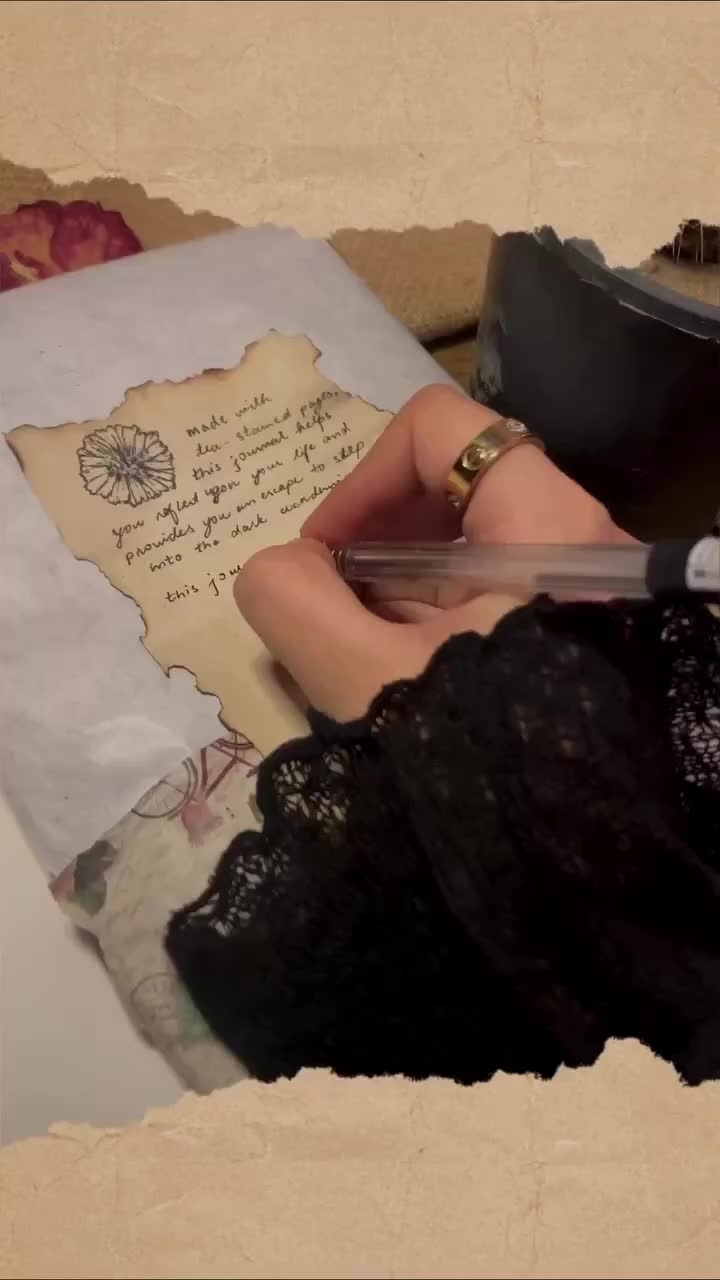 made with
tea-stained pages,
this journal helps
you reflect upon your life and
provides you an escape to step
into the dark
this jou